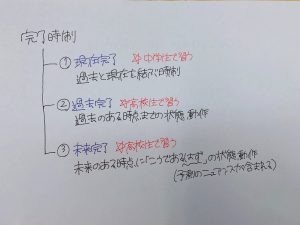 完了時制
① 現在完了 ※中学校で習う
過去と現在を結ぶ時制
② 過去完了 ※高校で習う
過去のある時点までの状態、動作
③ 未来完了 ※高校で習う
未来のある時点に「こうであるはず」の状態、動作
(予測のニュアンスが含まれる)